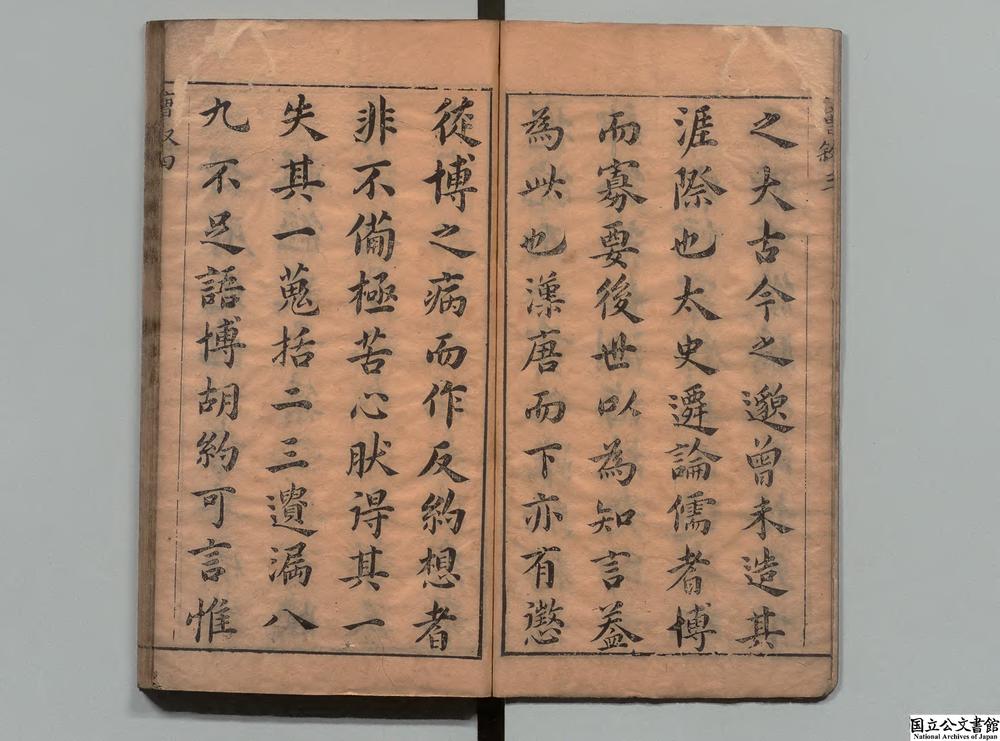 之大古今之邈曾未造其
涯際也太史遷論儒者博
而寡要後世以為知言葢
為此也漢唐而下亦有懲
從博之病而作反約想者
非不備極苦心肰得其一
失其一蒐括二三遺漏八
九不足語博胡約可言惟
国立公文書館
National Archives of Japan